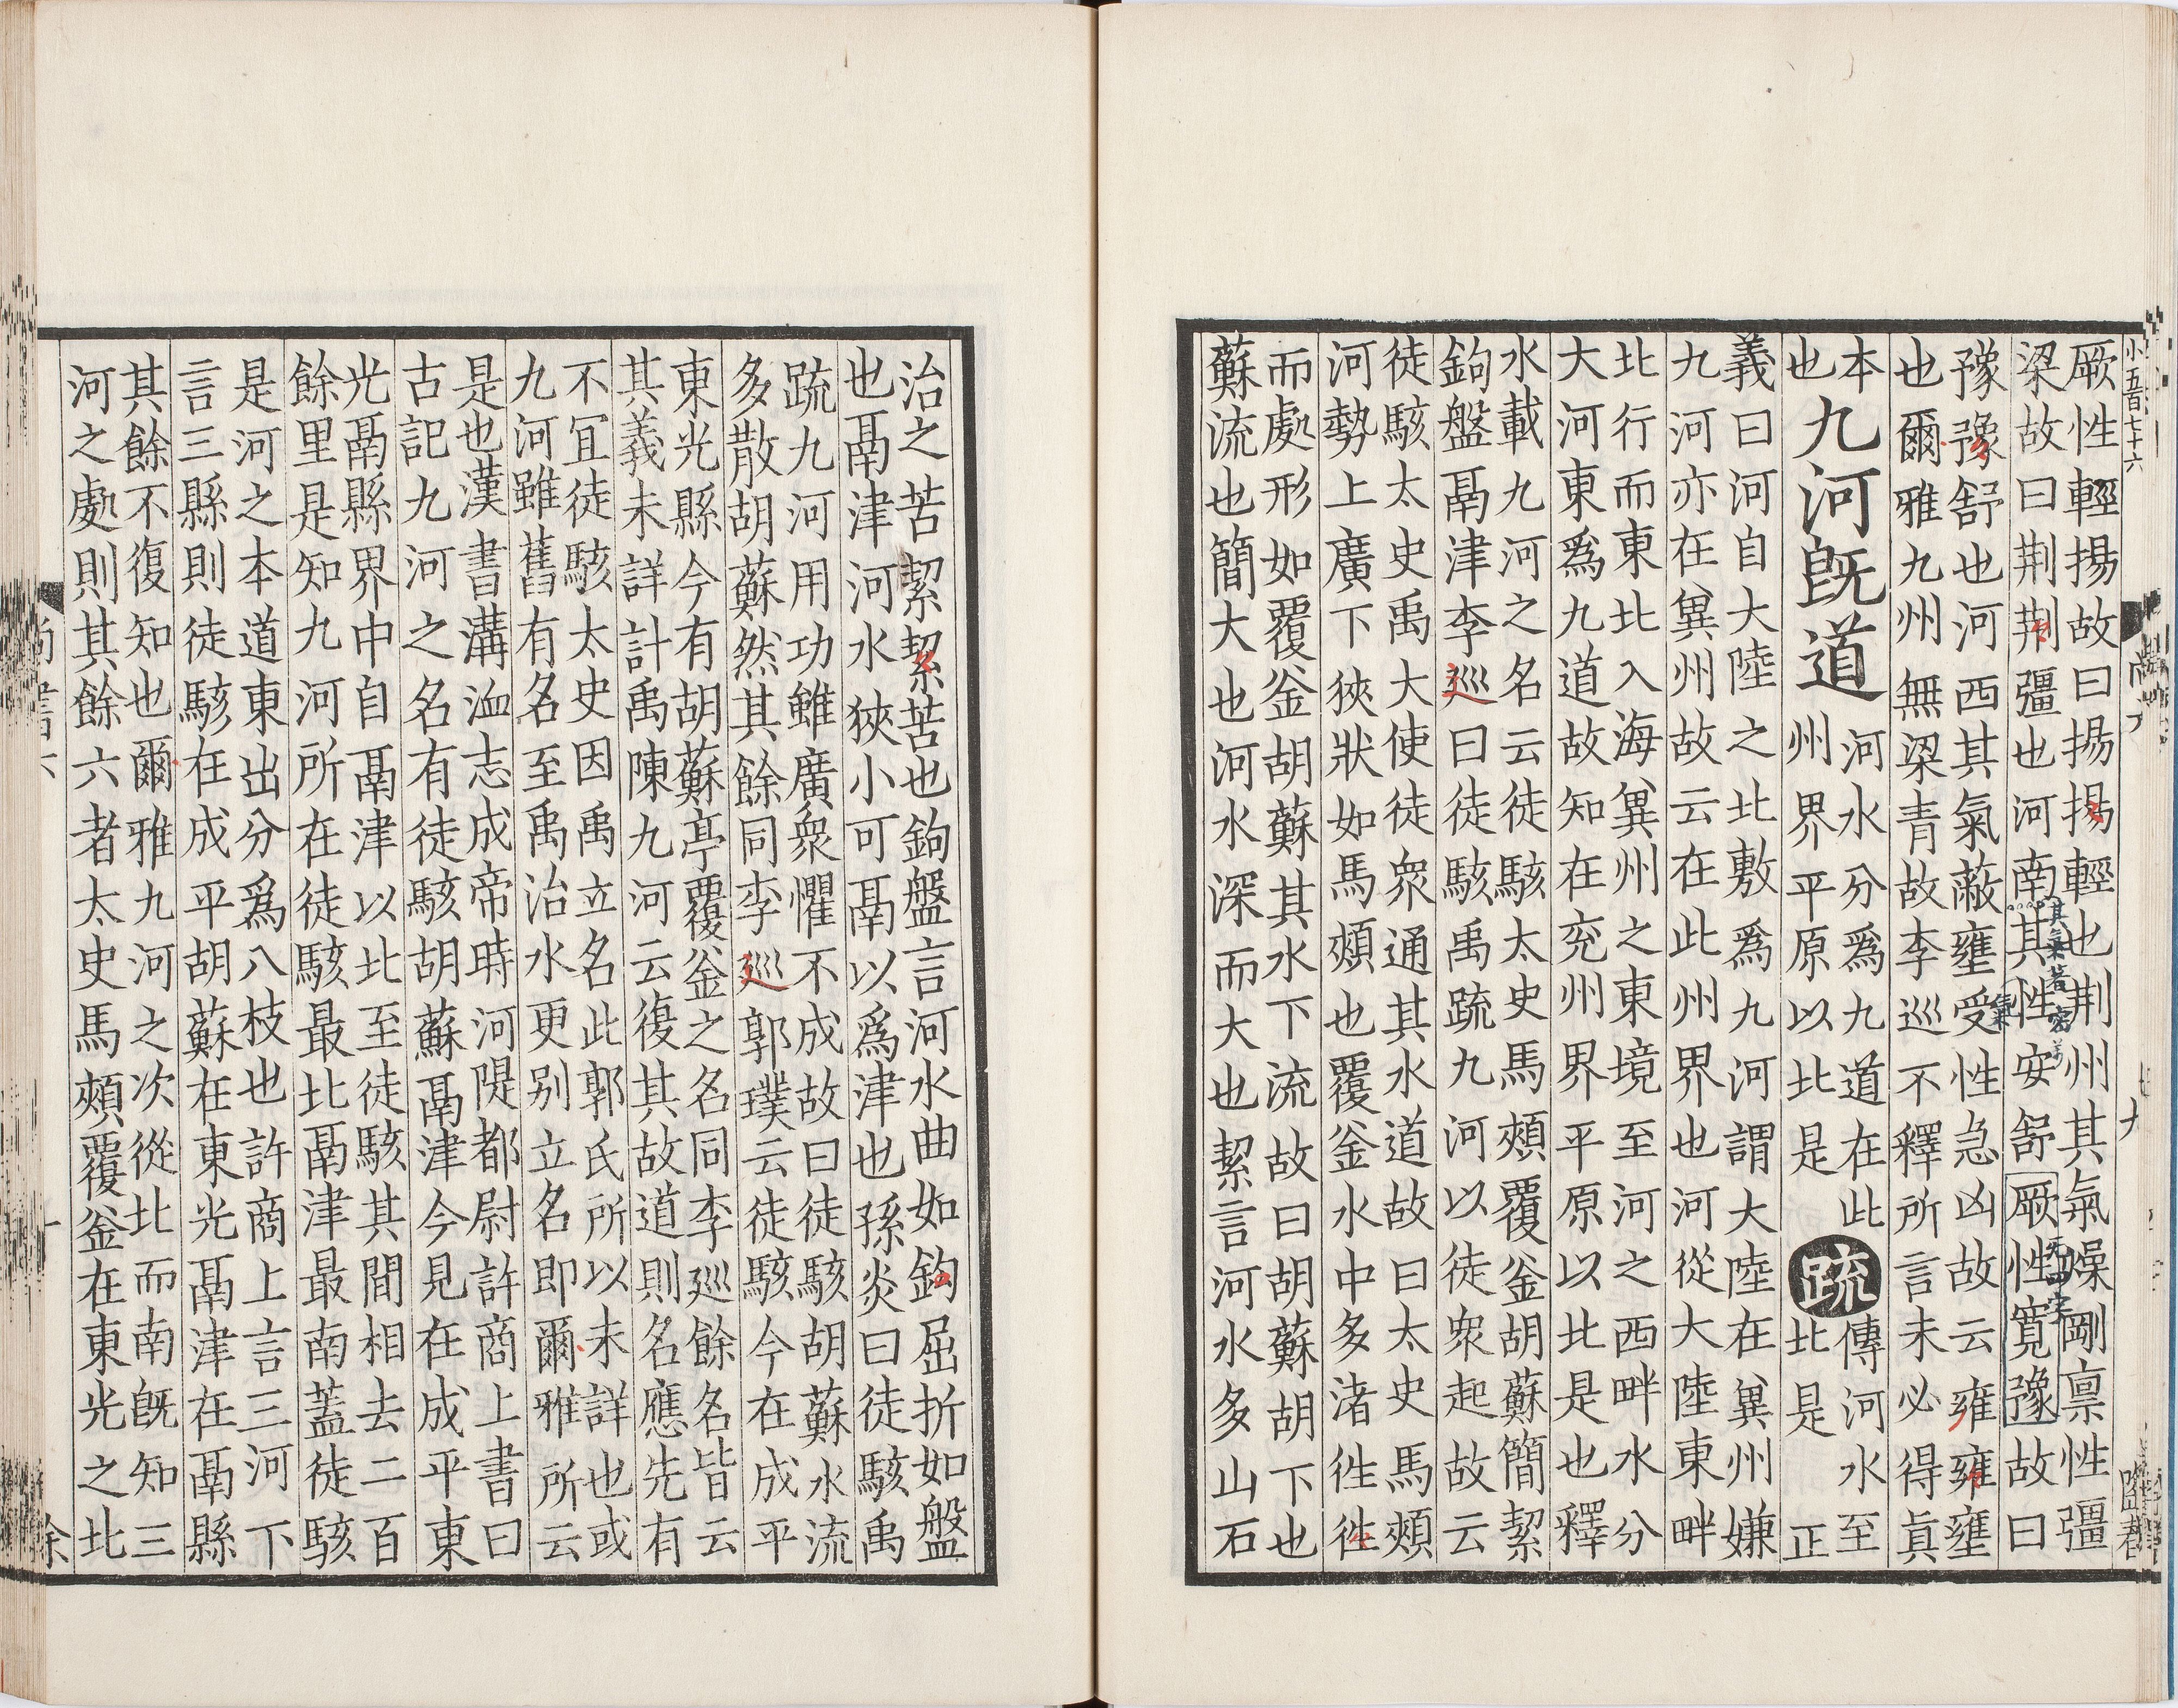 小五百七十六
厥性輕揚故曰揚揚輕也荆州其氣躁剛禀性彊
梁故曰荆荆彊也河南其性安舒厥性寛豫故曰
其氣著密
无四字
豫豫舒也河西其氣蔽壅受性急凶故云雍雍壅
也爾雅九州無梁青故李巡不釋所言未必得眞
本
也
九河既道
河水分爲九道在此
州界平原以北是
疏
傳河水至
北是 正
義曰河自大陸之北敷爲九河謂大陸在兾州嫌
九河亦在兾州故云在此州界也河從大陸東畔
北行而東北入海兾州之東境至河之西畔水分
大河東爲九道故知在兖州界平原以北是也釋
水載九河之名云徒駭太史馬頰覆釜胡蘇簡絜
鉤盤鬲津李巡曰徒駭禹疏九河以徒衆起故云
徒駭太史禹大使徒衆通其水道故曰太史馬頰
河勢上廣下狹狀如馬頰也覆釜水中多渚徃徃
而處形如覆釜胡蘇其水下流故曰胡蘇胡下也
蘇流也簡大也河水深而大也絜言河水多山石
治之苦絜絜苦也鉤盤言河水曲如鉤屈折如盤
也鬲津河水狹小可鬲以爲津也孫炎曰徒駭禹
疏九河用功雖廣衆懼不成故曰徒駭胡蘇水流
多散胡蘇然其餘同李巡郭璞云徒駭今在成平
東光縣今有胡蘇亭覆釜之名同李巡餘名皆云
其義未詳計禹陳九河云復其故道則名應先有
不冝徒駭太史因禹立名此郭氏所以未詳也或
九河雖舊有名至禹治水更别立名即爾雅所云
是也漢書溝洫志成帝時河隄都尉許商上書曰
古記九河之名有徒駭胡蘇鬲津今見在成平東
光鬲縣界中自鬲津以北至徒駭其間相去二百
餘里是知九河所在徒駭最北鬲津最南蓋徒駭
是河之本道東出分爲八枝也許商上言三河下
言三縣則徒駭在成平胡蘇在東光鬲津在鬲縣
其餘不復知也爾雅九河之次從北而南既知三
河之處則其餘六者太史馬頰覆釜在東光之北